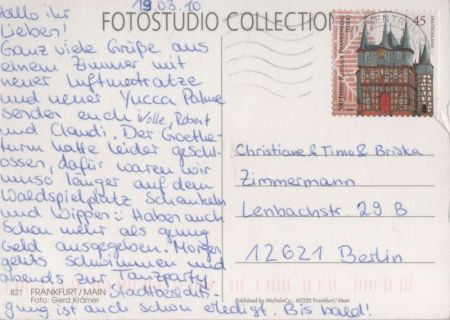 Hallo ihr
19.03.10
Lieben!
Ganz viele Grüße aus
einem Zimmer mit
neuer Luftmatratze
und neuer Yucca Palme
senden euch Wolle, Robert
und Claudi. Der Goethe-
turm hatte leider geschl-
ossen, dafür waren wir
umso länger auf dem
Waldspielplatz Schaukeln
und Wippen ü Haben auch
schon mehr als genug
Geld ausgegeben. Morgen
gehts schwimmen und
abends zur Tanzparty.
Stadtbesichti-
gung ist auch schon erledigt. Bis bald!
FOTOSTUDIO COLLECTION
45
Christiane & Timo & Briska
Zimmermann
Lenbachstr. 29 B
12621 Berlin
821 FRANKFURT/MAIN
Foto: Gerd Krämer
Published by Michel+Co., 60320 Frankfurt/Main